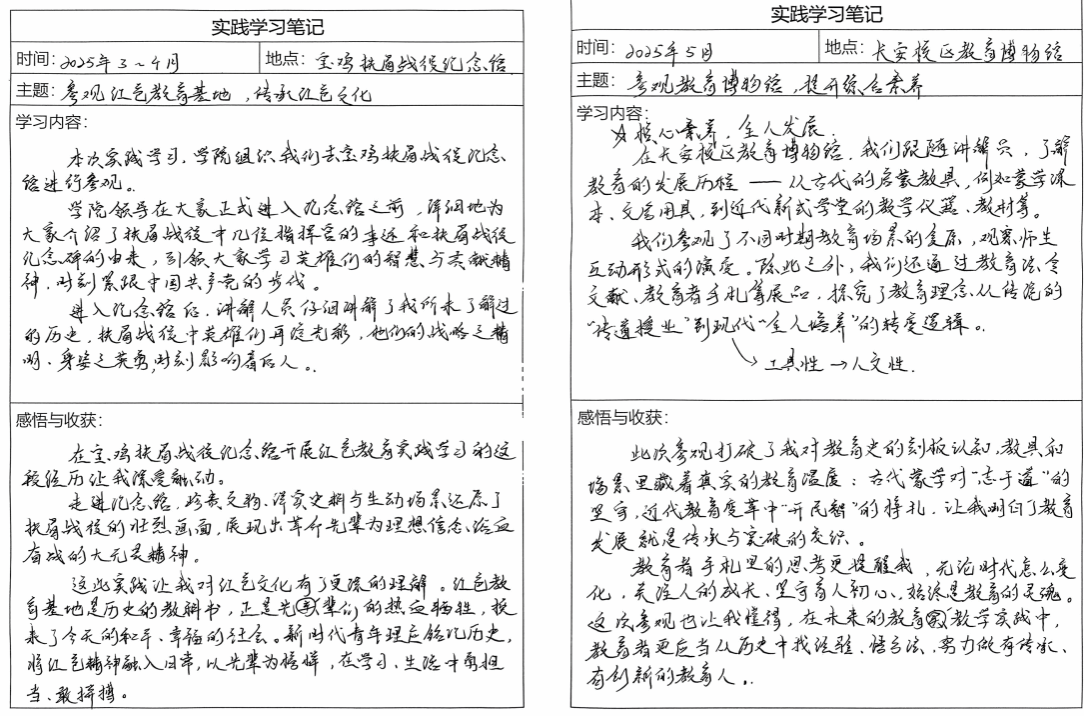 实践学习笔记
时间: 2025年3~4月 地点: 宝鸡扶眉战役纪念馆
主题: 参观红色教育基地,传承红色文化
学习内容:
本次实践学习,学院组织我们去宝鸡扶眉战役纪念
馆进行参观。
学院领导在大家正式进入纪念馆之前,详细地为
大家介绍了扶眉战役中几位指挥官的事迹和扶眉战役
纪念碑的由来,引领大家学习英雄们的智慧与贡献精
神,时刻紧跟中国共产党的步伐。
进入纪念馆后,讲解人员仔细讲解了我所未了解过
的历史,扶眉战役中英雄们再绽光彩,他们的战略之精
明、身姿之英勇,时刻影响着后人。
感悟与收获:
在宝鸡扶眉战役纪念馆开展红色教育实践学习的这
段经历让我深受触动。
走进纪念馆,珍贵文物、详实史料与生动场景还原了
扶眉战役的壮烈画面,展现出革命先辈为理想信念浴血
奋战的大无畏精神。
这次实践让我对红色文化有了更深的理解。红色教
育基地是历史的教科书,正是先辈们的热血牺牲,换
来了今天的和平、幸福的社会。新时代青年理应铭记历史,
将红色精神融入日常,以先辈为榜样,在学习、生活中勇担
当、敢拼搏。
实践学习笔记
时间: 2025年5月 地点: 长安校区教育博物馆
主题: 参观教育博物馆,提升综合素养
学习内容:
☆核心素养,全人发展.
在长安校区教育博物馆,我们跟随讲解员,了解
教育的发展历程——从古代的启蒙教具,例如蒙学课
本、文房用具,到近代新式学堂的教学仪器、教材等。
我们参观了不同时期教育场景的复原,观察师生
互动形式的演变。除此之外,我们还通过教育法令
文献、教育者手札等展品,探究了教育理念从传统的
“传道授业”到现代“全人培养”的转变逻辑。
工具性→人文性.
感悟与收获:
此次参观打破了我对教育史的刻板认知,教具和
场景里藏着真实的教育温度:古代蒙学对“志于道”的
坚守,近代教育变革中“开民智”的挣扎,让我明白了教育
发展就是传承与突破的交织。
教育者手札里的思考更提醒我,无论时代怎么变
化,关注人的成长、坚守育人初心,始终是教育的灵魂。
这次参观也让我懂得,在未来的教育教学实践中,
教育者更应当从历史中找经验、悟方法,努力做有传承、
有创新的教育人。